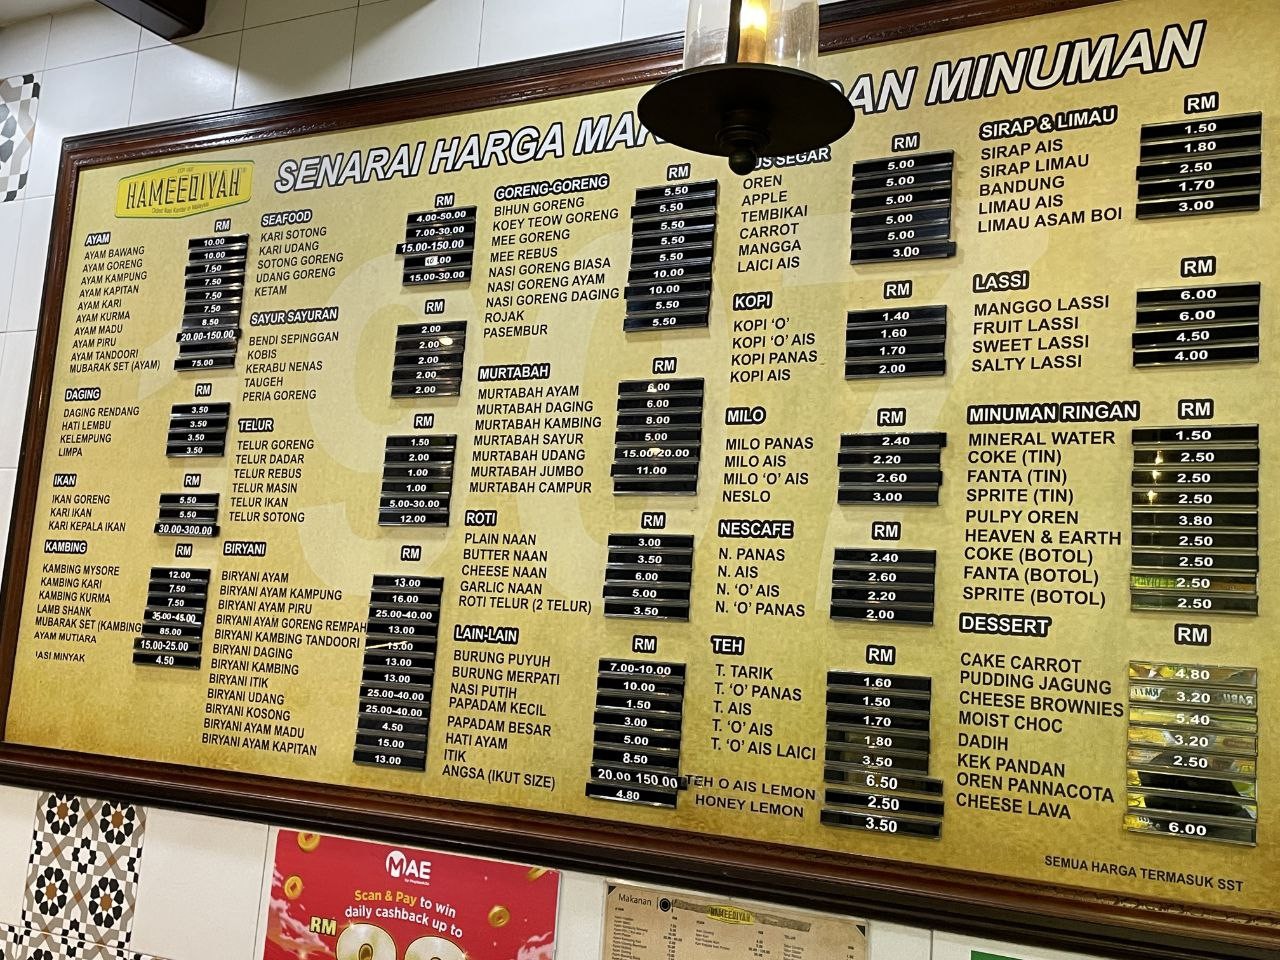 SENARAI HARGA MAK DAN MINUMAN
HAMEEDIYAH
Oldest Nasi Kandar in Malaysia
AYAM
RM
AYAM BAWANG
AYAM GORENG
AYAM KAMPUNG
AYAM KAPITAN
AYAM KARI
AYAM KURMA
AYAM MADU
AYAM PIRU
AYAM TANDOORI
MUBARAK SET (AYAM)
10.00
10.00
7.50
7.50
7.50
7.50
8.50
20.00-150.00
75.00
DAGING
RM
DAGING RENDANG
HATI LEMBU
KELEMPUNG
LIMPA
3.50
3.50
3.50
3.50
IKAN
RM
IKAN GORENG
KARI IKAN
KARI KEPALA IKAN
5.50
5.50
30.00-300.00
KAMBING
RM
KAMBING MYSORE
KAMBING KARI
KAMBING KURMA
LAMB SHANK
MUBARAK SET (KAMBING
AYAM MUTIARA
ASI MINYAK
12.00
7.50
7.50
35.00-45.00
85.00
15.00-25.00
4.50
SEAFOOD
RM
KARI SOTONG
KARI UDANG
SOTONG GORENG
UDANG GORENG
KETAM
4.00-50.00
7.00-30.00
15.00-150.00
15.00-30.00
SAYUR SAYURAN
RM
BENDI SEPINGGAN
KOBIS
KERABU NENAS
TAUGEH
PERIA GORENG
2.00
2.00
2.00
2.00
2.00
TELUR
RM
TELUR GORENG
TELUR DADAR
TELUR REBUS
TELUR MASIN
TELUR IKAN
TELUR SOTONG
1.50
2.00
1.00
1.00
5.00-30.00
12.00
BIRYANI
RM
BIRYANI AYAM
BIRYANI AYAM KAMPUNG
BIRYANI AYAM PIRU
BIRYANI AYAM GORENG REMPAH
BIRYANI KAMBING TANDOORI
BIRYANI DAGING
BIRYANI KAMBING
BIRYANI ITIK
BIRYANI UDANG
BIRYANI KOSONG
BIRYANI AYAM MADU
BIRYANI AYAM KAPITAN
13.00
16.00
25.00-40.00
13.00
15.00
13.00
13.00
25.00-40.00
25.00-40.00
4.50
15.00
13.00
GORENG-GORENG
RM
BIHUN GORENG
KOEY TEOW GORENG
MEE GORENG
MEE REBUS
NASI GORENG BIASA
NASI GORENG AYAM
NASI GORENG DAGING
ROJAK
PASEMBUR
5.50
5.50
5.50
5.50
5.50
10.00
10.00
5.50
5.50
MURTABAH
RM
MURTABAH AYAM
MURTABAH DAGING
MURTABAH KAMBING
MURTABAH SAYUR
MURTABAH UDANG
MURTABAH JUMBO
MURTABAH CAMPUR
6.00
6.00
8.00
5.00
15.00-20.00
11.00
ROTI
RM
PLAIN NAAN
BUTTER NAAN
CHEESE NAAN
GARLIC NAAN
ROTI TELUR (2 TELUR)
3.00
3.50
6.00
5.00
3.50
LAIN-LAIN
RM
BURUNG PUYUH
BURUNG MERPATI
NASI PUTIH
PAPADAM KECIL
PAPADAM BESAR
HATI AYAM
ITIK
ANGSA (IKUT SIZE)
7.00-10.00
10.00
1.50
3.00
5.00
8.50
20.00 150.00
4.80
US SEGAR
RM
OREN
APPLE
TEMBIKAI
CARROT
MANGGA
LAICI AIS
5.00
5.00
5.00
5.00
5.00
3.00
KOPI
RM
KOPI 'O'
KOPI 'O' AIS
KOPI PANAS
KOPI AIS
1.40
1.60
1.70
2.00
MILO
RM
MILO PANAS
MILO AIS
MILO 'O' AIS
NESLO
2.40
2.20
2.60
3.00
NESCAFE
RM
N. PANAS
N. AIS
N. 'O' AIS
N. 'O' PANAS
2.40
2.60
2.20
2.00
TEH
RM
T. TARIK
T. 'O' PANAS
T. AIS
T. 'O' AIS
T. 'O' AIS LAICI
TEH O AIS LEMON
HONEY LEMON
1.60
1.50
1.70
1.80
3.50
6.50
2.50
3.50
SIRAP & LIMAU
RM
SIRAP AIS
SIRAP LIMAU
BANDUNG
LIMAU AIS
LIMAU ASAM BOI
1.50
1.80
2.50
1.70
3.00
LASSI
RM
MANGGO LASSI
FRUIT LASSI
SWEET LASSI
SALTY LASSI
6.00
6.00
4.50
4.00
MINUMAN RINGAN
RM
MINERAL WATER
COKE (TIN)
FANTA (TIN)
SPRITE (TIN)
PULPY OREN
HEAVEN & EARTH
COKE (BOTOL)
FANTA (BOTOL)
SPRITE (BOTOL)
1.50
2.50
2.50
2.50
3.80
2.50
2.50
2.50
2.50
DESSERT
RM
CAKE CARROT
PUDDING JAGUNG
CHEESE BROWNIES
MOIST CHOC
DADIH
KEK PANDAN
OREN PANNACOTA
CHEESE LAVA
4.80
3.20
5.40
3.20
2.50
6.00
SEMUA HARGA TERMASUK SST
MAE
Scan & Pay to win
daily cashback up to
RM
Makanan
HAMEEDIYAH